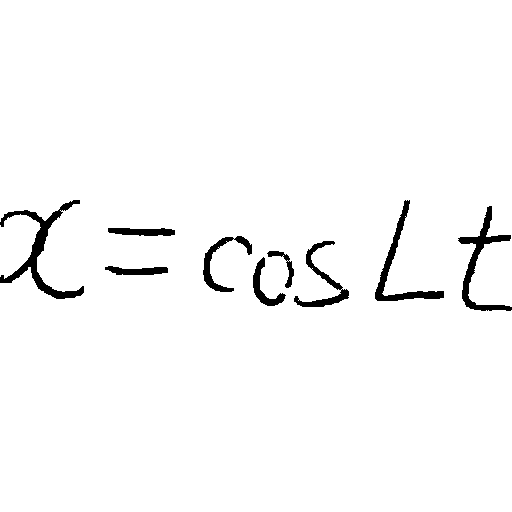 x = cos L t